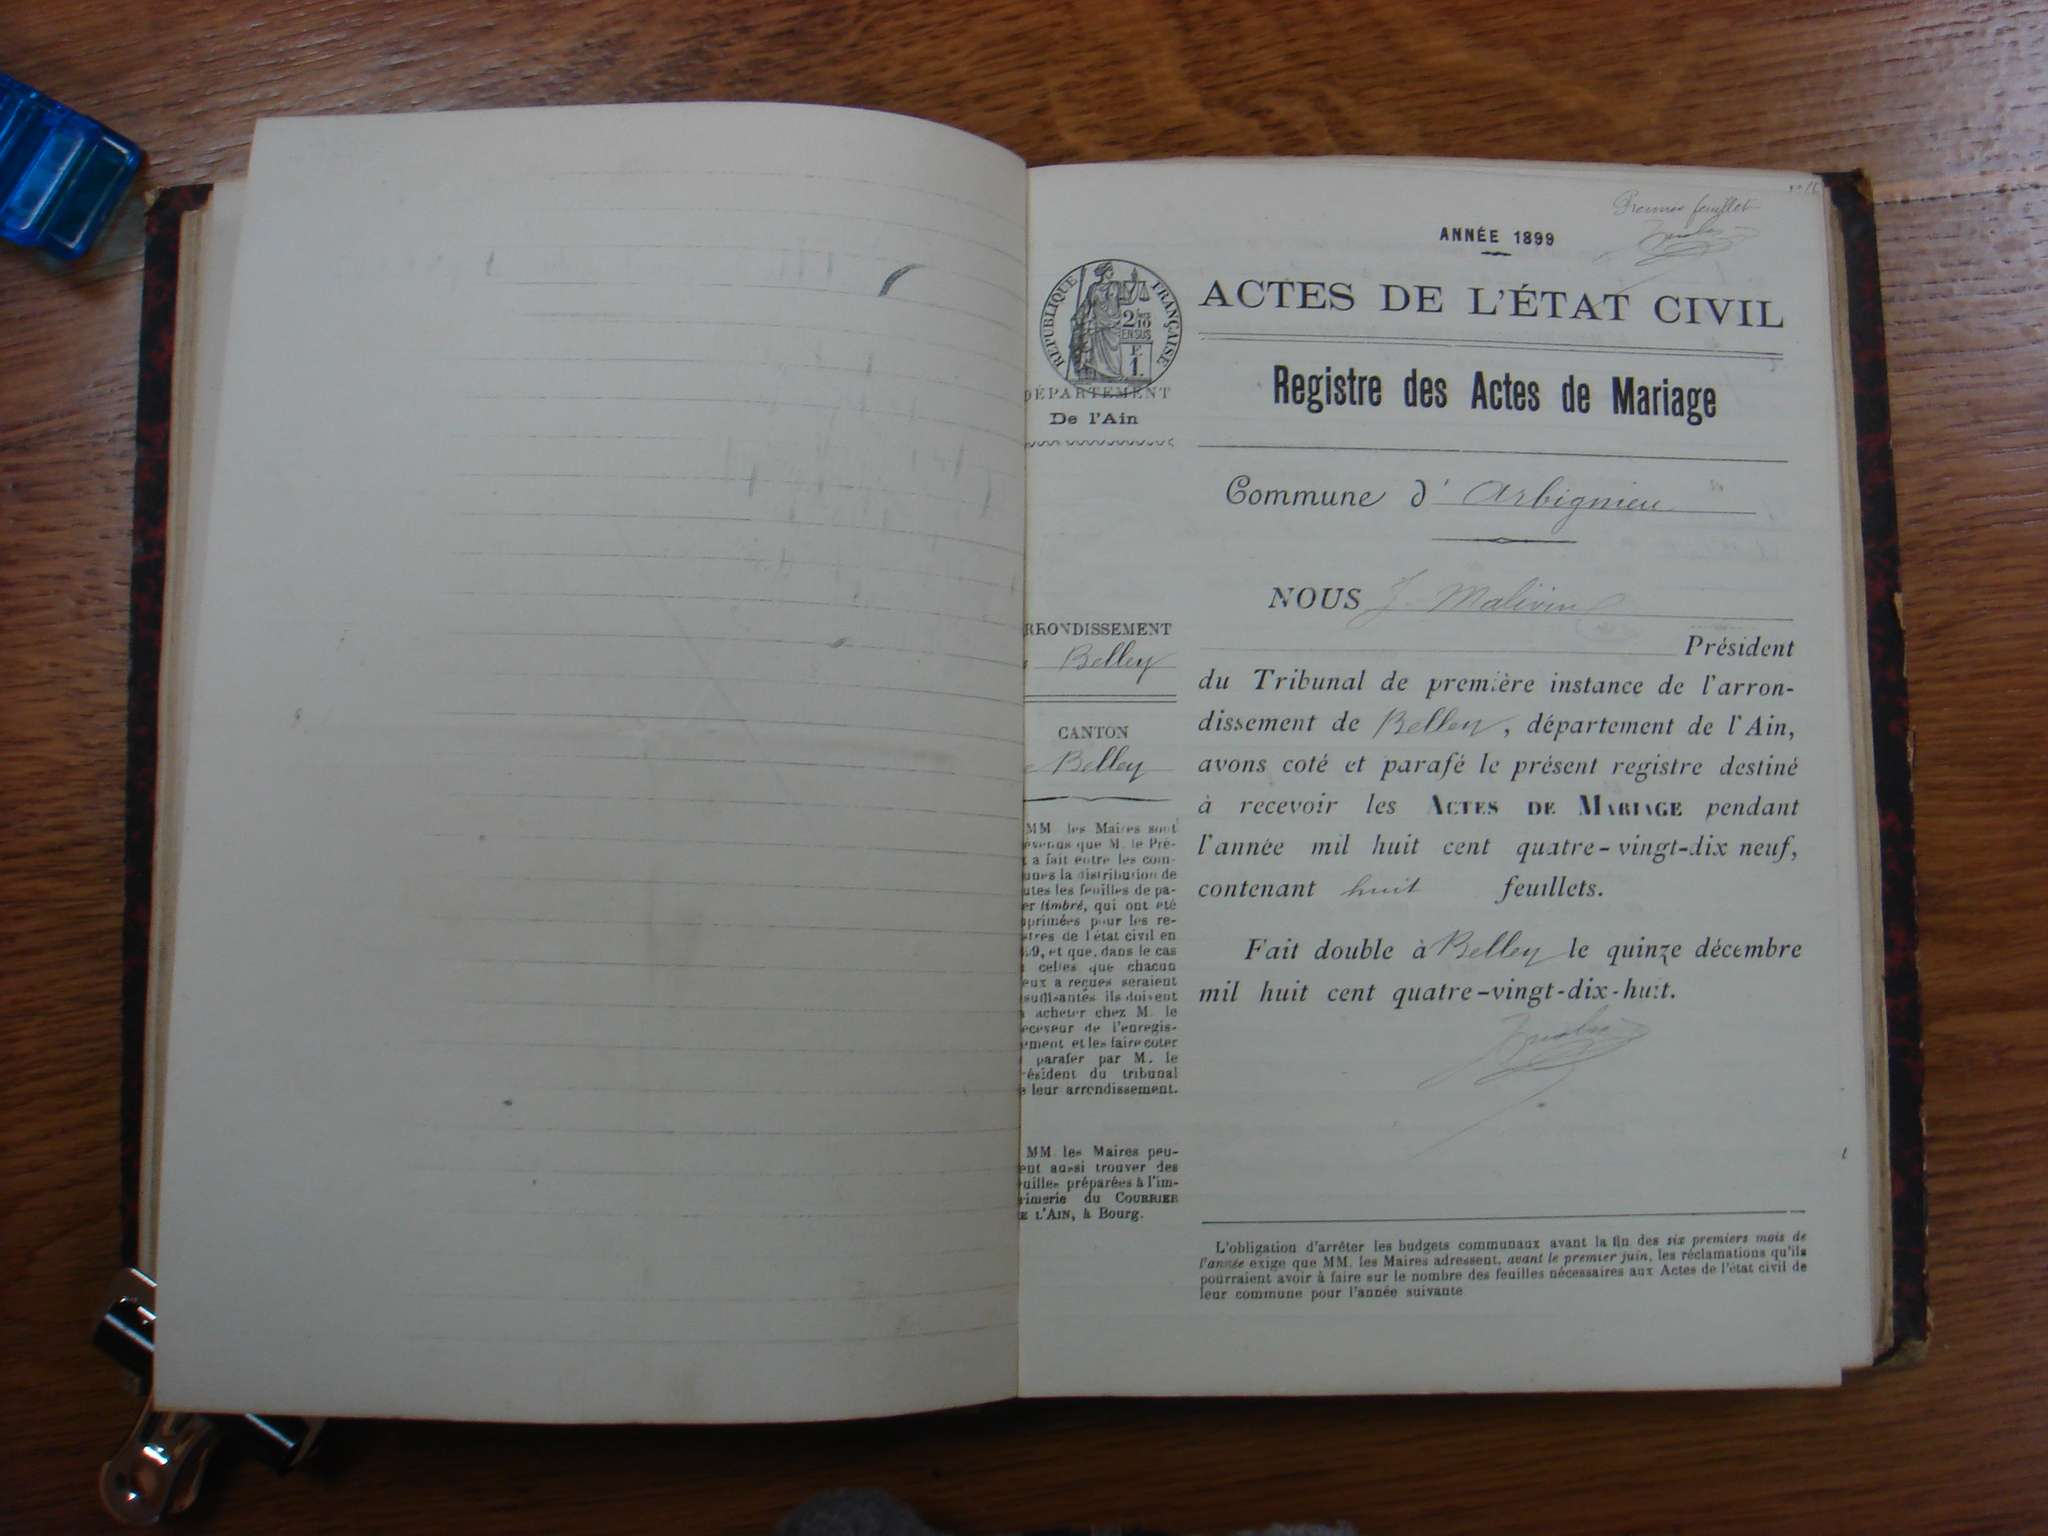 Premier feuillet
ANNÉE 1899
ACTES DE L'ÉTAT CIVIL
RÉPUBLIQUE FRANÇAISE
2/10
EN SUS
F.
1.
DÉPARTEMENT
De l'Ain
Registre des Actes de Mariage
Commune d' Arbignieu
NOUS J. Malivin
Président
du Tribunal de première instance de l'arron-
dissement de Belley, département de l'Ain,
avons coté et parafé le présent registre destiné
à recevoir les ACTES DE MARIAGE pendant
l'année mil huit cent quatre-vingt-dix neuf,
contenant huit feuillets.
Fait double à Belley le quinze décembre
mil huit cent quatre-vingt-dix-huit.
RRONDISSEMENT
Belley
CANTON
e Belley
MM. les Maires sont
évenus que M. le Pré-
t a fait entre les com-
unes la distribution de
utes les feuilles de pa-
er timbré, qui ont été
primées pour les re-
stres de l'état civil en
99, et que, dans le cas
celles que chacun
eux a reçues seraient
suffisantes ils doivent
acheter chez M. le
eceveur de l'enregis-
ement et les faire coter
parafer par M. le
résident du tribunal
e leur arrondissement.
MM. les Maires peu-
ent aussi trouver des
uilles préparées à l'im-
rimerie du COURRIER
E L'AIN, à Bourg.
L'obligation d'arrêter les budgets communaux avant la fin des six premiers mois de
l'année exige que MM. les Maires adressent, avant le premier juin, les réclamations qu'ils
pourraient avoir à faire sur le nombre des feuilles nécessaires aux Actes de l'état civil de
leur commune pour l'année suivante